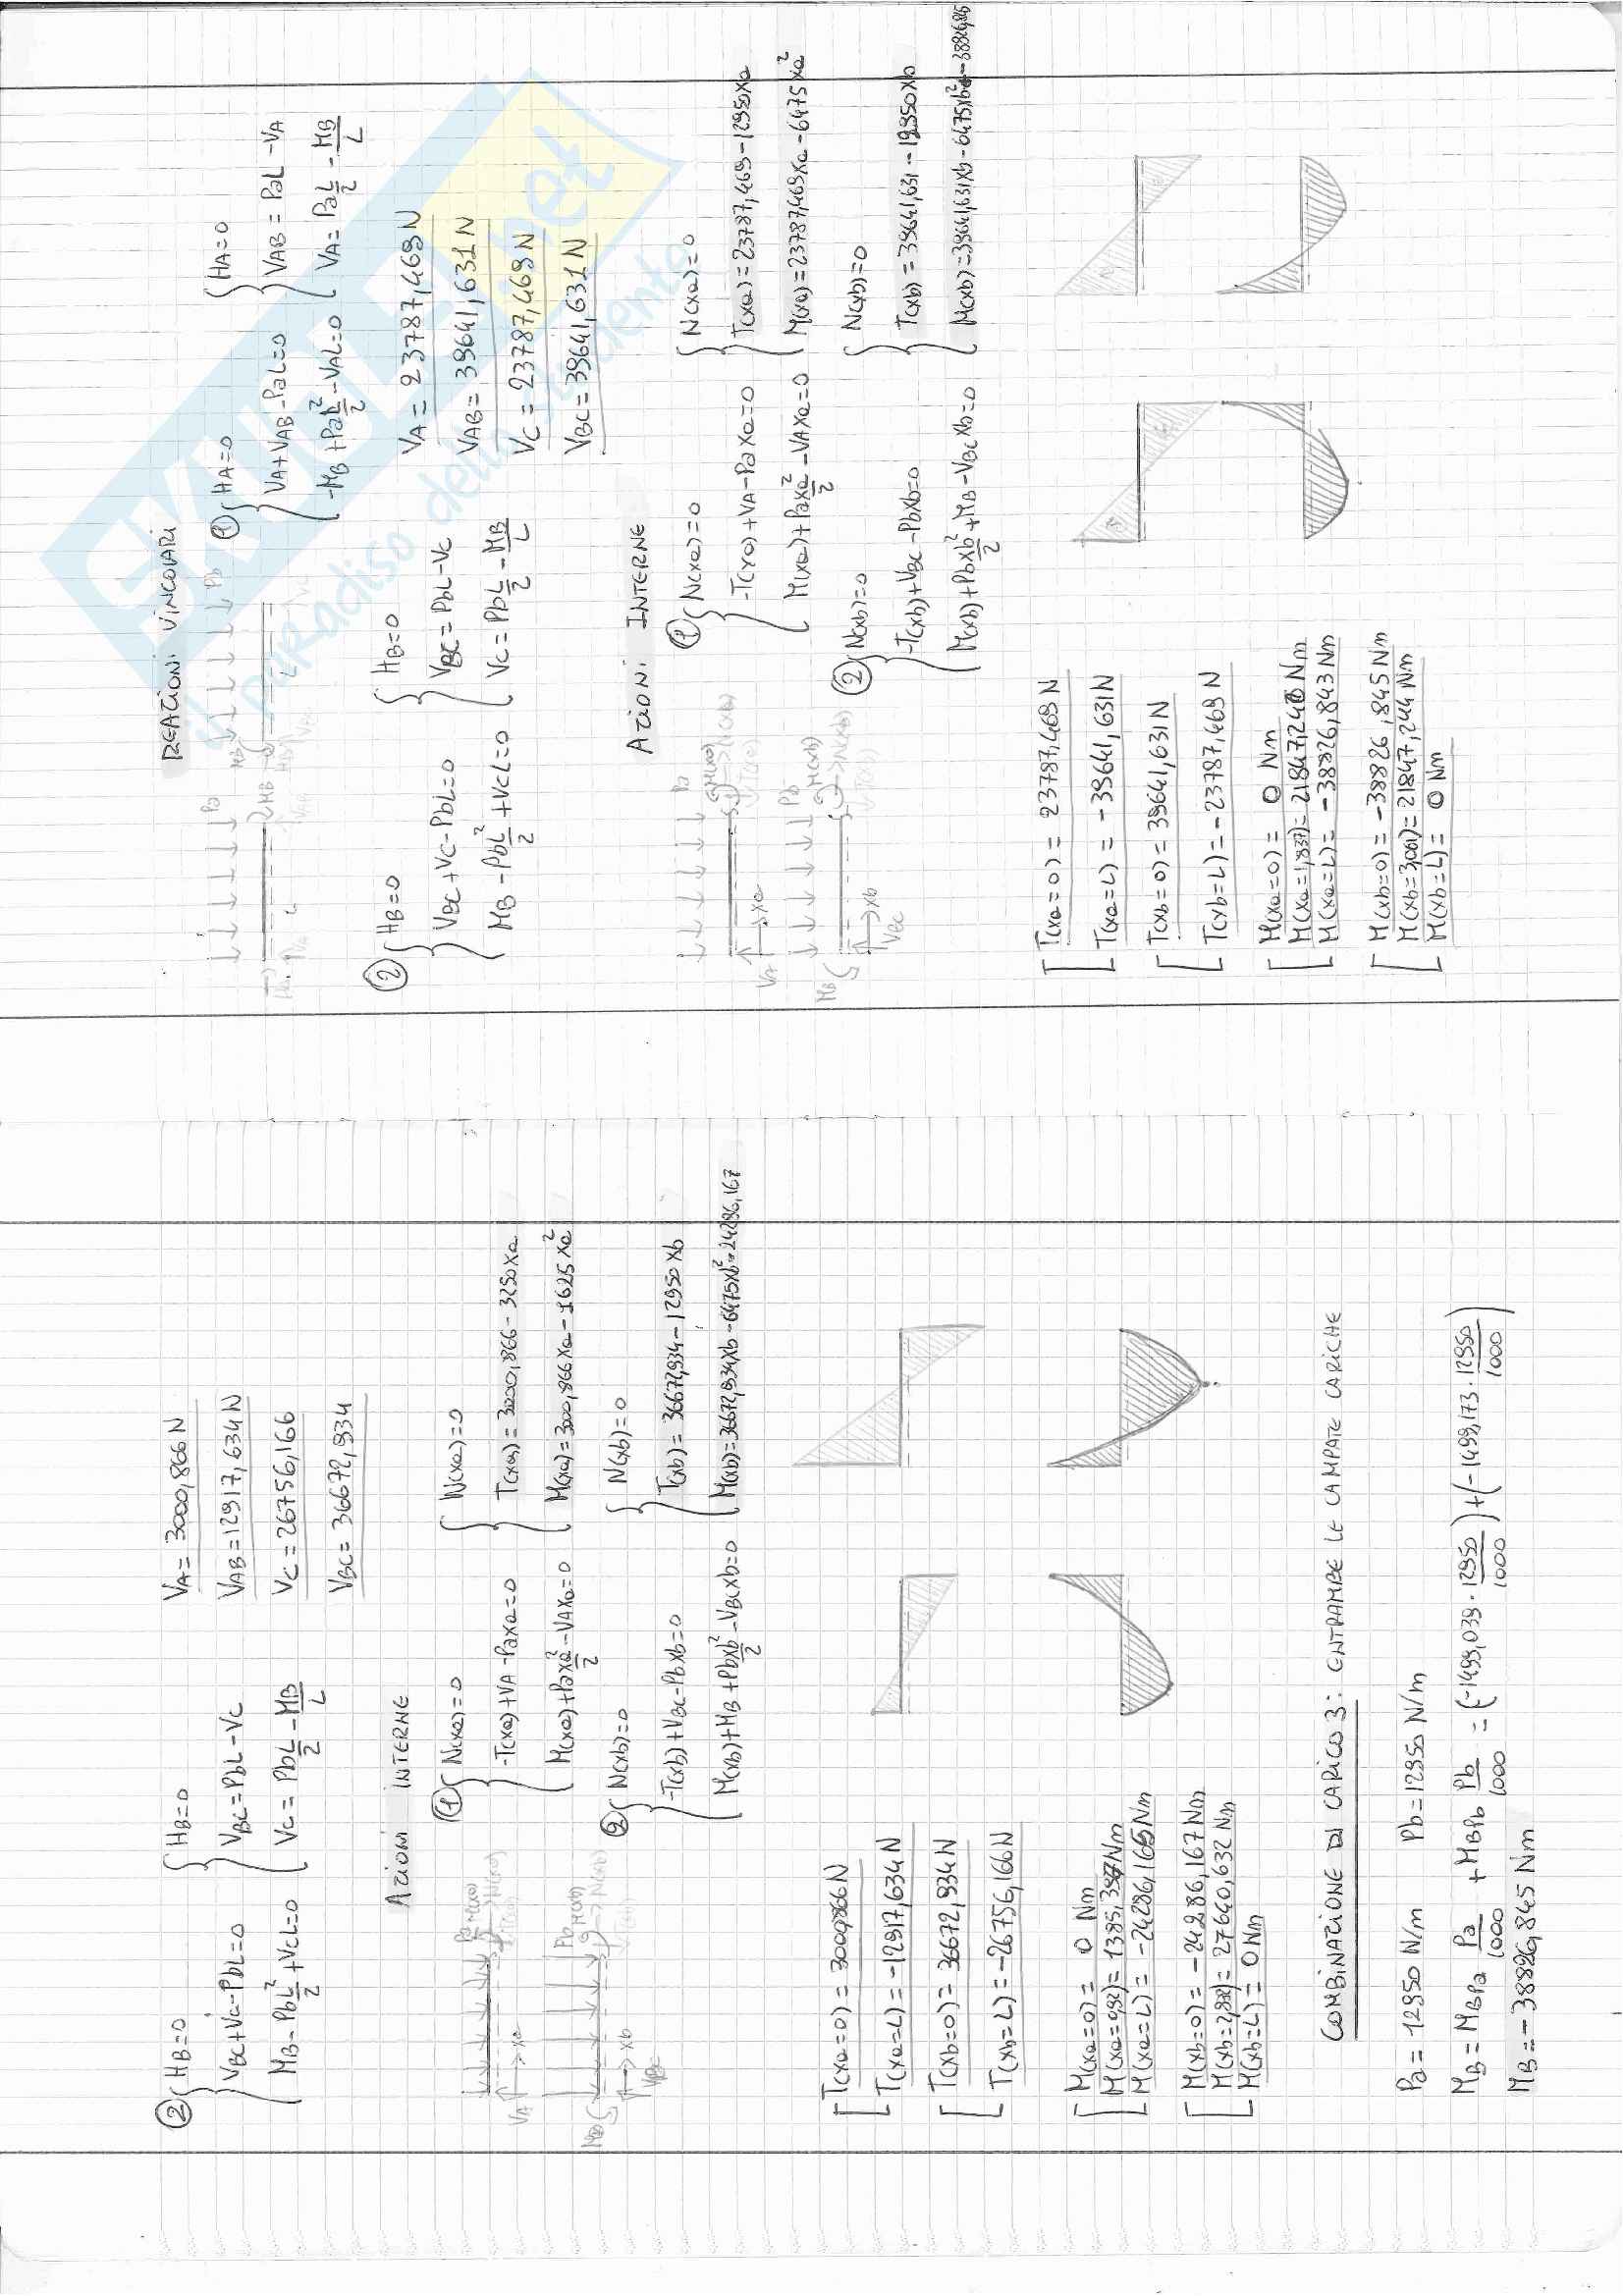 ② { HB=0
VBC+VC-PbL=0
MB-PbL²/2+VCL=0
{ HB=0
VBC=PbL-VC
VC=PbL/2-MB/L
VA=3000,866N
VAB=12917,634N
VC=26756,166
VBC=36672,934
AZIONI INTERNE
Pa M(xa)
N(xa)
T(xa)
VA xa
Pb M(xb)
N(xb)
MB xb
VBC
① { N(xa)=0
-T(xa)+VA-Paxa=0
M(xa)+Paxa²/2-VAxa=0
{ N(xa)=0
T(xa)=3000,866-3250xa
M(xa)=3000,866xa-1625xa²
② { N(xb)=0
-T(xb)+VBC-Pbxb=0
M(xb)+MB+Pbxb²/2-VBCxb=0
{ N(xb)=0
T(xb)=36672,934-12950xb
M(xb)=36672,934xb-6475xb²-24286,167
[ T(xa=0)=3000,866N
T(xa=L)=-12917,634N
[ T(xb=0)=36672,934N
T(xb=L)=-26756,166N
[ M(xa=0)= 0 Nm
M(xa=0,92)=1385,397Nm
M(xa=L)=-24286,165Nm
[ M(xb=0)=-24286,167Nm
M(xb=2,83)=27640,632Nm
M(xb=L)=0Nm
COMBINAZIONE DI CARICO 3: ENTRAMBE LE CAMPATE CARICHE
Pa=12950 N/m Pb=12950 N/m
MB=MBPa Pa/1000 +MBPb Pb/1000 =(-1499,039·12950/1000)+(-1499,173·12950/1000)
MB=-38826,845 Nm
REAZIONI VINCOLARI
Pa
MB
L
MB Pb
L
① { HA=0
VA+VAB-PaL=0
-MB+PaL²/2-VAL=0
{ HA=0
VAB=PaL-VA
VA=PaL/2-MB/L
② { HB=0
VBC+VC-PbL=0
MB-PbL²/2+VCL=0
{ HB=0
VBC=PbL-VC
VC=PbL/2-MB/L
VA=23787,469N
VAB=39641,631N
VC=23787,469N
VBC=39641,631N
AZIONI INTERNE
Pa M(xa)
N(xa)
T(xa)
VA xa
Pb M(xb)
N(xb)
MB xb
VBC
① { N(xa)=0
-T(xa)+VA-Paxa=0
M(xa)+Paxa²/2-VAxa=0
{ N(xa)=0
T(xa)=23787,469-12950xa
M(xa)=23787,469xa-6475xa²
② { N(xb)=0
-T(xb)+VBC-Pbxb=0
M(xb)+Pbxb²/2+MB-VBCxb=0
{ N(xb)=0
T(xb)=39641,631-12950xb
M(xb)=39641,631xb-6475xb²-38826,845
[ T(xa=0)=23787,469N
T(xa=L)=-39641,631N
[ T(xb=0)=39641,631N
T(xb=L)=-23787,469N
[ M(xa=0)= 0 Nm
M(xa=1,837)=21847,248Nm
M(xa=L)=-38826,843Nm
[ M(xb=0)=-38826,845Nm
M(xb=3,061)=21847,244Nm
M(xb=L)= 0 Nm
SKUOLA.net
il paradiso dello studente